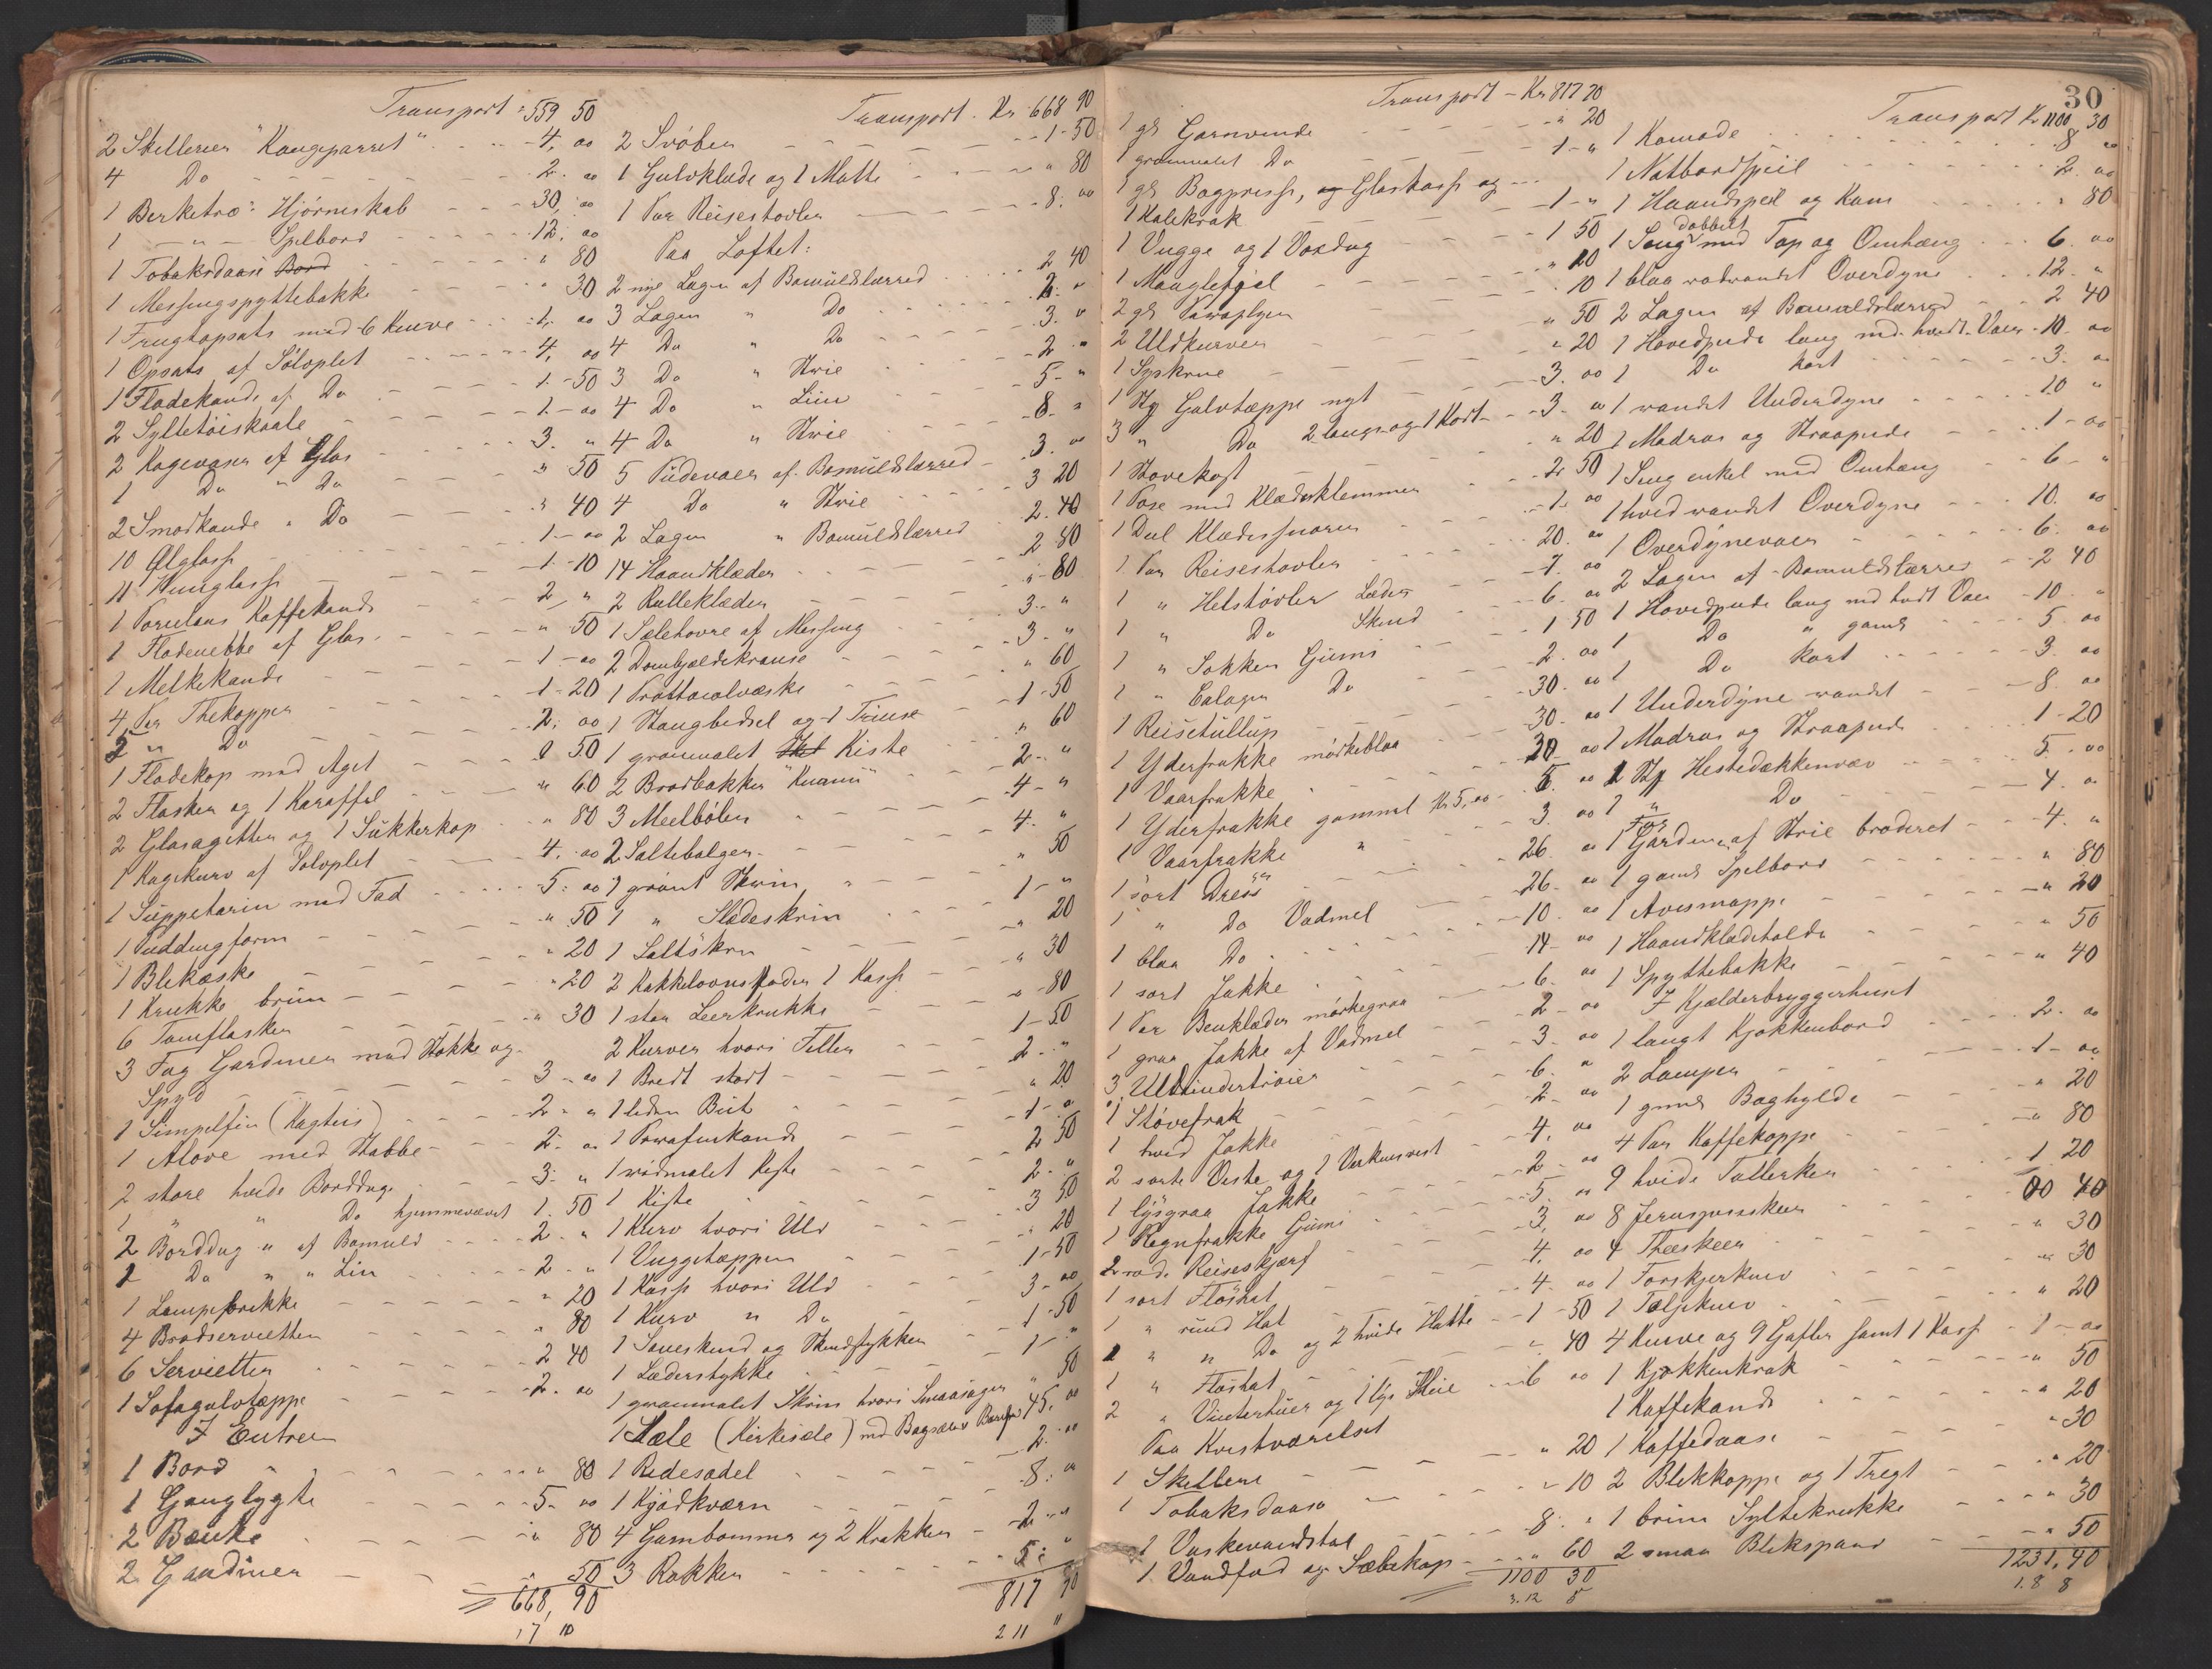 Transport - 559 50
2 Skillerier "Kongeparret" 4, 00
4 Do 2. 00
1 Berketræ's Hjørneskab 30, 00
1 -"- Spelbord 12, 00
1 Tobaksdaase Bord " 80
1 Messingspyttebakke " 30
1 Frugtopsats med 6 Knive 1. 00
1 Opsats af Sølvplet 4, 00
1 Flødekande af Do 1. 50
2 Syltetøiskaale 1. 00
2 Kagevaser af Glas 3. "
1 Do " Do " 50
2 Smørkande " Do " 40
10 Ølglass 1 - 00
11 Vinglass 1 - 10
1 Porselæns Kaffekande 2, "
1 Flødenebbe af Glas " 50
1 Melkekande 1 - 00
4 Par Thekopper 1 - 20
2 " Do 2, 00
1 Flødekop med Aget 1 50
2 Flasker og 1 Karaffel " 60
2 Glasagetter og 1 Sukkerkop " 80
1 Kagekurv af Sølvplet 4, 00
1 Suppeterin med Fad 5. 00
1 Puddingform " 50
1 Blekæske " 20
1 Krukke brun " 20
6 Tomflasker " 30
3 Fag Gardiner med Stokke og
Spyd 3 - 00
1 Simpelfin (Kagteis) 2 - "
1 Alove med Stabbe 2. 00
2 store hvide Borddug 3. "
1 " " Do hjemmevævet 1. 50
2 Borddug " af Bomuld 2. "
1 Do " " Lin 2. "
1 Lampebrikke " 20
4 Brødservietter " 80
6 Servietter 2 40
1 Sofagulvtæppe 2. 00
I Entreen
1 Bord " 80
1 Ganglygte 5. 00
2 Bænke " 80
2 Gardiner " 50
668, 90
17 10
Transport. Kr. 668 90
2 Svøber 1 - 50
1 Gulvklæde og 1 Matte " 80
1 Par Reisestøvler 8. 00
Paa Loftet:
2 nye Lagen af Bomuldslærred 2 40
3 Lagen " Do 2. "
4 Do " Do 3. "
3 Do " Strie 2 - "
4 Do " Lin 5 - "
4 Do " Strie 8. "
5 Pudevaer af Bomuldslærred 3. 00
4 Do " Strie 3 20
2 Lagen " Bomuldslærred 2. 40
14 Haandklæder 2 80
2 Rulleklæder " - 80
1 Sælehovre af Messing 3. "
2 Dombjældekranse 3. "
1 Protocolvæske " 60
1 Stangbedsel og 1 Trinse 1 - 50
1 grønmalet Skt Kiste " 60
2 Brødbakker "Kvanne" 2. "
3 Meelbøler 4 - "
2 Saltebalger 4. "
1 grønt Skrin " 50
1 " Slædeskrin 1 - "
1 Saltskrin " 20
2 Kakkelovnsfader 1 Kasse " 30
1 stor Leerkrukke " 80
2 Kurver hvori Filler 1 - 50
1 Bredt stort 2. "
1 liden Büt " 20
1 Parafinkande 1 - "
1 rødmalet Kiste 2 50
1 Kiste 2. "
1 Kurv hvori Uld 3 50
1 Vuggetæppen " 20
1 Kasse hvori Uld 1 - 50
1 Kurv " Do 3 - 00
1 Saueskind og Skindstykker 1 - 50
1 Læderstykke 1 - "
1 grønmalet Skrin hvori Smaasager " 50
1 Sæle (Kirkesæle) med Bogsæler 45, 00
1 Ridesadel 2. 00
1 Kjødkværn 8. "
4 Garnbommer og 2 Krakker 2 - "
3 Rokker 5. "
817 20
2 11 "
Transport - Kr 817 20
1 gl Garnvinde " 20
1 grønmalet Do 1 - "
1 gl Bogpresse, og Glaskasse og
1 Kalekrak 1 - "
1 Vugge og 1 Voxdug 1 50
1 Manglefjøl " 20
2 gl Paraplyer " 10
2 Uldkurver " 50
1 Syskrue " 20
1 Stk Gulvtæppe nyt 3. 00
3 " Do 2 lange og 1 Kort 3. 00
1 Stovekost " 20
1 Pose med Klædesklemmer 2 50
1 Deel Klædessnorer 1. 00
1 Par Reisestøvler 20. 00
1 " Helstøvler Læder 7. 00
1 " Do Skind 6. 00
1 " Sokker Gümi 1 50
1 " Calager Do 2. 00
1 Reisetullup 30. 00
1 Yderfrakke mørkeblaa 30. 00
1 Vaarfrakke 20 00
1 Yderfrakke gammel Kr 5,00 5. 00
1 Vaarfrakke " 3. 00
1 sort Dress 26. 00
1 " Do Vadmel 26. 00
1 blaa Do 10. 00
1 sort Jakke 14. 00
1 Par Benklæder mørkegraa 6. 00
1 graa Jakke af Vadmel 2 - 00
3 Uldundertrøier 3. 00
1 Støvefrak 6. "
1 hvid Jakke 2 - 00
2 sorte Veste og 1 Verkensvest 4, 00
1 lysgraa Jakke 2 - 00
1 Regnfrakke Gümi 5. "
2 røde Reiseskjærf 3. 00
1 sort Floshat 4. 00
1 " rund Hat 4. 00
1 " " Do og 2 hvide Hatte 1 - 50
1 " Floshat " 40
2 " Vinterhuer og 1 lys Skie 6 00
Paa Kvistværelset
1 Skilleri " 20
1 Tobaksdaase " 10
1 Vaskevandstol 8. "
1 Vandfad og Sæbekop " 60
1100 30
3.12 5
30
Transport Kr 1100 30
1 Komode 8 00
1 Natbordspeil 2. 00
1 Haandspeil og Kam " 80
1 Seng dobbelt med Top og Omhæng 6. 00
1 blaa rødrandet Overdyne 12. "
2 Lagen af Bomuldslærred 2 40
1 Hovedpude lang md. hvidt Vaer 10. 00
1 Do kort 3. 00
1 randet Underdyne 10 "
1 Madras og Straapude 1 - 00
1 Seng enkel med Omhæng 6 - "
1 hvid randet Overdyne 10. 00
1 Overdynevaer 6. 00
2 Lagen af Bomuldslærred 2 40
1 Hovedpude lang md hvidt Vaer 10. "
1 Do " gaml 5. 00
1 Do kort 3. 00
1 Underdyne randet 8. 00
1 Madras og Straapude 1 - 20
1 Stk Hestedækkenvæv 5. 00
1 " Do 4. 00
1 Fag Gardiner af Strie broderet 4. "
1 gaml Spelbord " 80
1 Avismappe " 20
1 Haandklædeholder " 50
1 Spyttebakke " 40
I Kjælderbryggerhuset
1 langt Kjøkkenbord 2. 00
2 Lamper 1 - 00
1 gml Baghylde " 20
4 Par Kaffekoppe " 80
9 hvide Tallerken 1. 20
8 Jernspiseskeer 00 40
4 Theskeer " 30
1 Forskjerkniv " 30
1 Tæljekniv " 20
4 Knive og 9 Gafler samt 1 Kasse 1 - 00
1 Kjøkkenkrak " 50
1 Kaffekande " 20
1 Kaffedaase " 30
2 Blekkoppe og 1 Tregt " 20
1 brun Syltekrukke " 30
2 smaa Blikspand " 50
1231, 40
1. 8 8